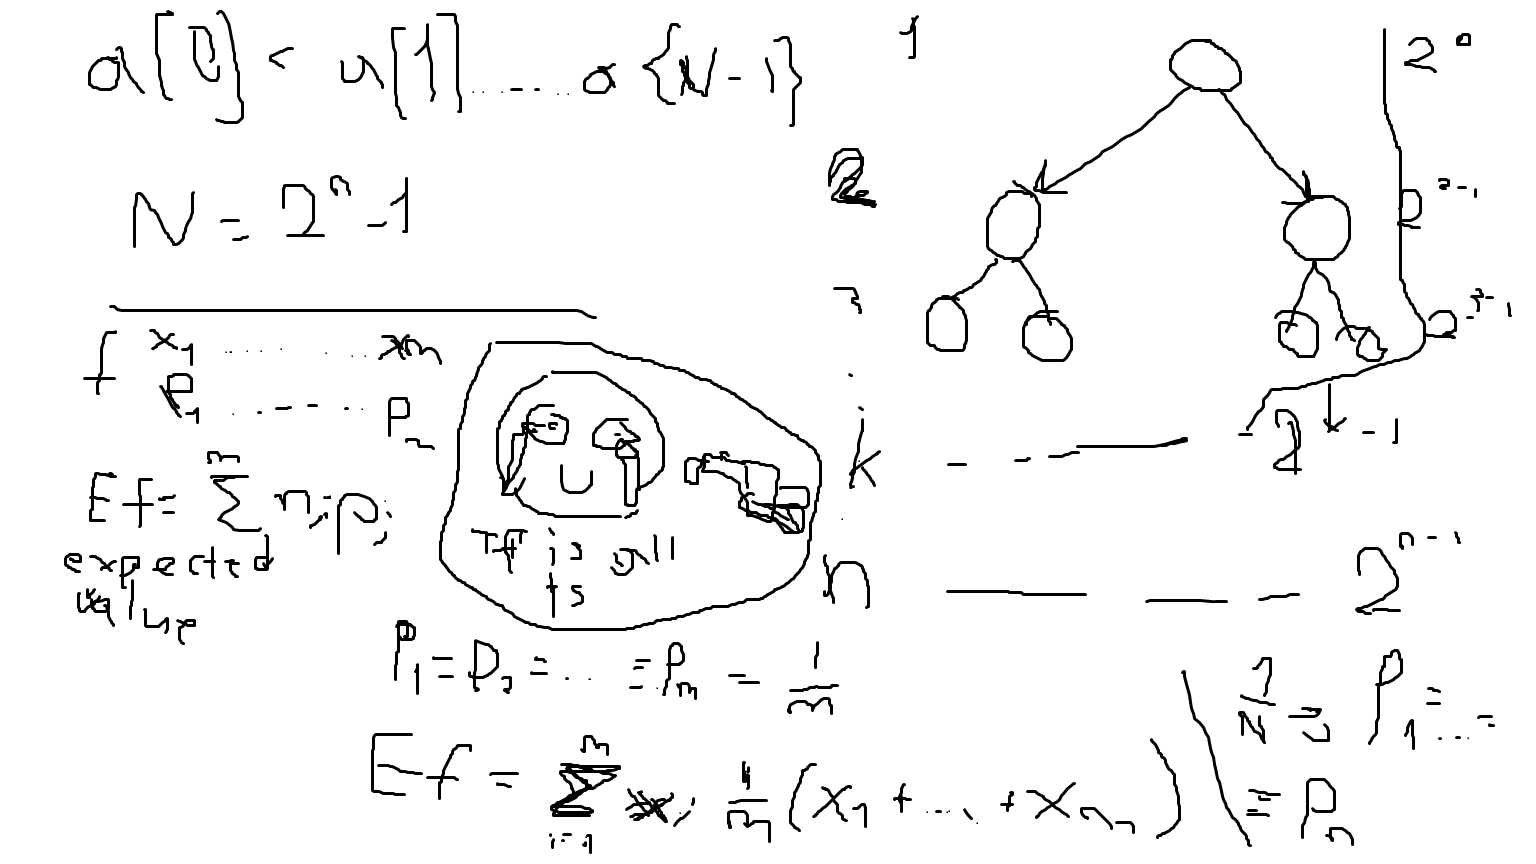 a[0] < a[1] ...... a{N-1}
N = 2^n -1
f x1 ...... xm
P1 ...... Pm
Ef = m Σ x;p;
expected
value
Tf is all
ts
P1 = P2 = ... = Pm = 1/m
Ef = m Σ i=1 x; 1/m (x1 + ... + xm)
1 2^0
2 2^2-1
3 2^3-1
k - - - 2^k-1
n - - - 2^n-1
1/N = P1 = ... =
= Pn